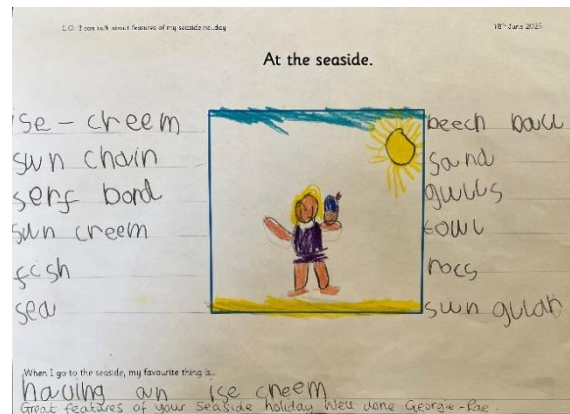 L.O: I can talk about features of my seaside holiday
18th June 2025
At the seaside.
ise - creem
sun chain
serf bord
sun creem
fish
sea
beech ball
sand
gulls
towl
rocs
sun
When I go to the seaside, my favourite thing is...
having an ise creem
Great features of your seaside holiday Well done Georgie-Rae.